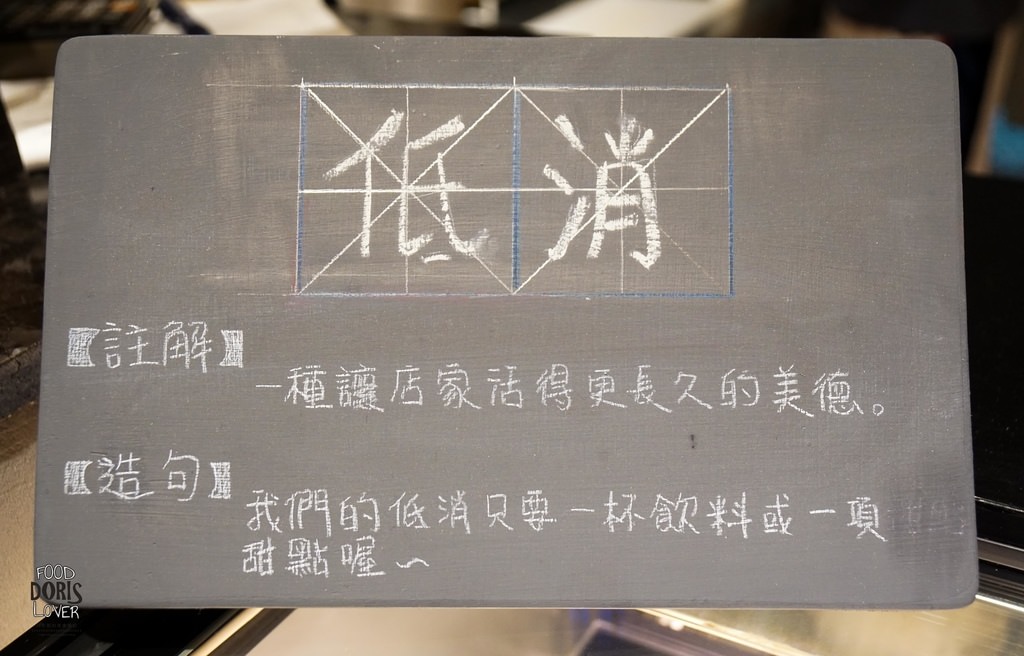 低消
【註解】
一種讓店家活得更長久的美德。
【造句】
我們的低消只要一杯飲料或一項
甜點喔~
FOOD
DORIS
LOVER